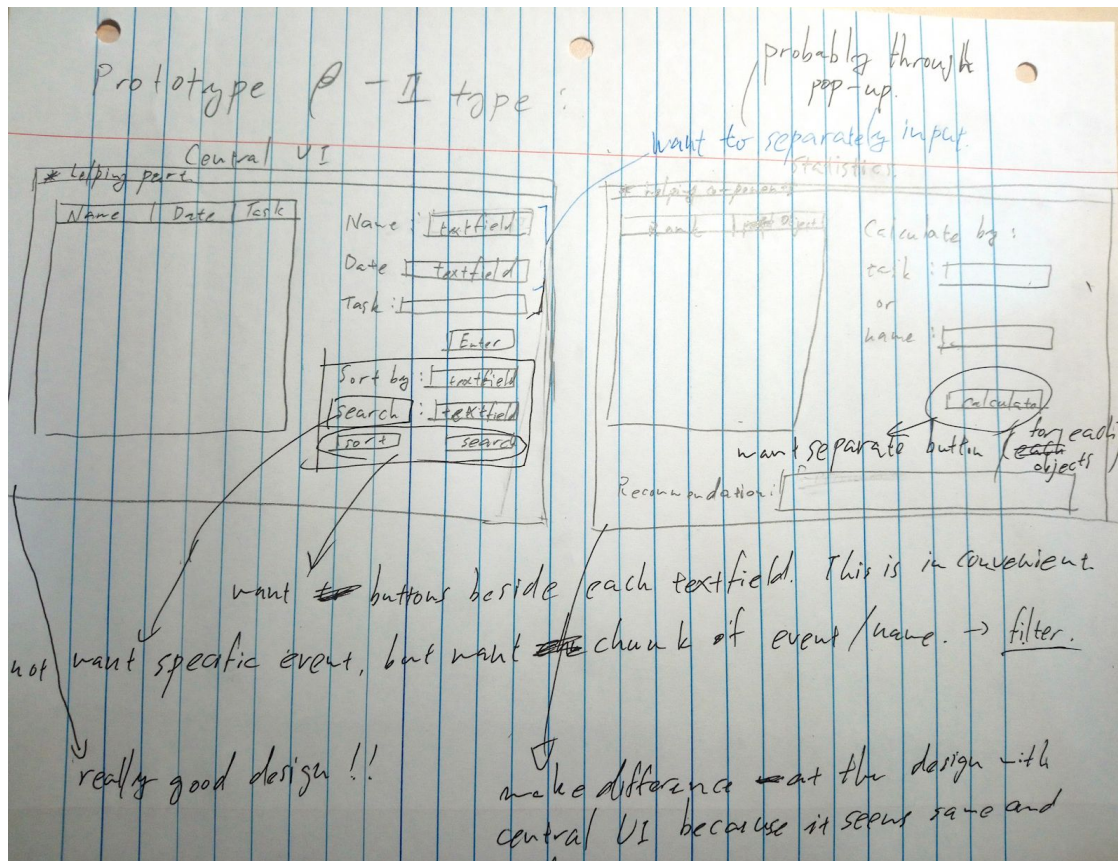 Prototype β - II type :
probably through
pop-up.
want to separately input.
Central UI
* helping part
Name | Date | Task
Name : textfield
Date : textfield
Task :
Enter
Sort by : textfield
search : textfield
sort search
Statistics
* helping components
Calculate by :
task :
or
name :
calculate
want separate button (for each
objects)
Recommendation :
want buttons beside each textfield. This is inconvenient.
not want specific event, but want chunk of event/name. → filter.
really good design !!
make difference at the design with
central UI because it seems same and